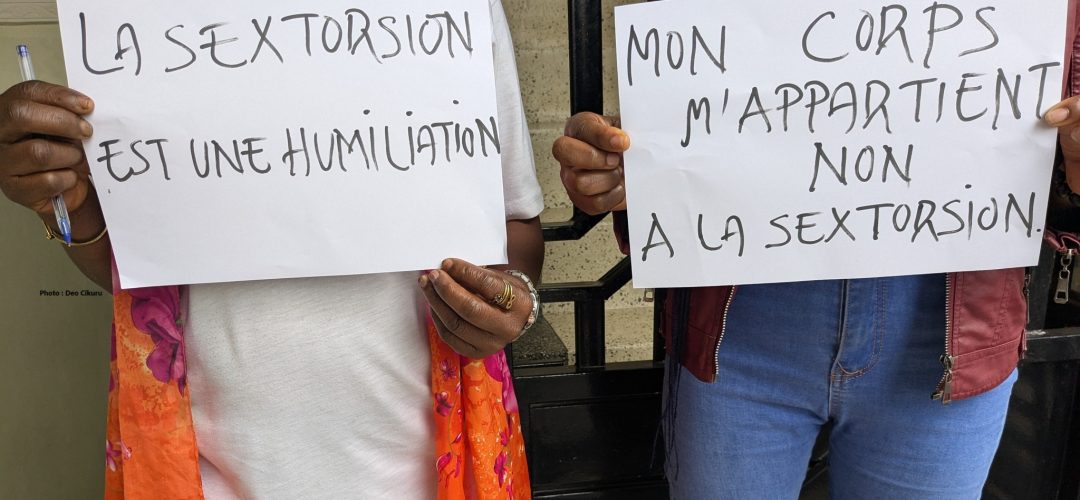 LA SEXTORSION
EST UNE HUMILIATION
MON CORPS
M'APPARTIENT
NON
A LA SEXTORSION.
Photo : Deo Cikuru